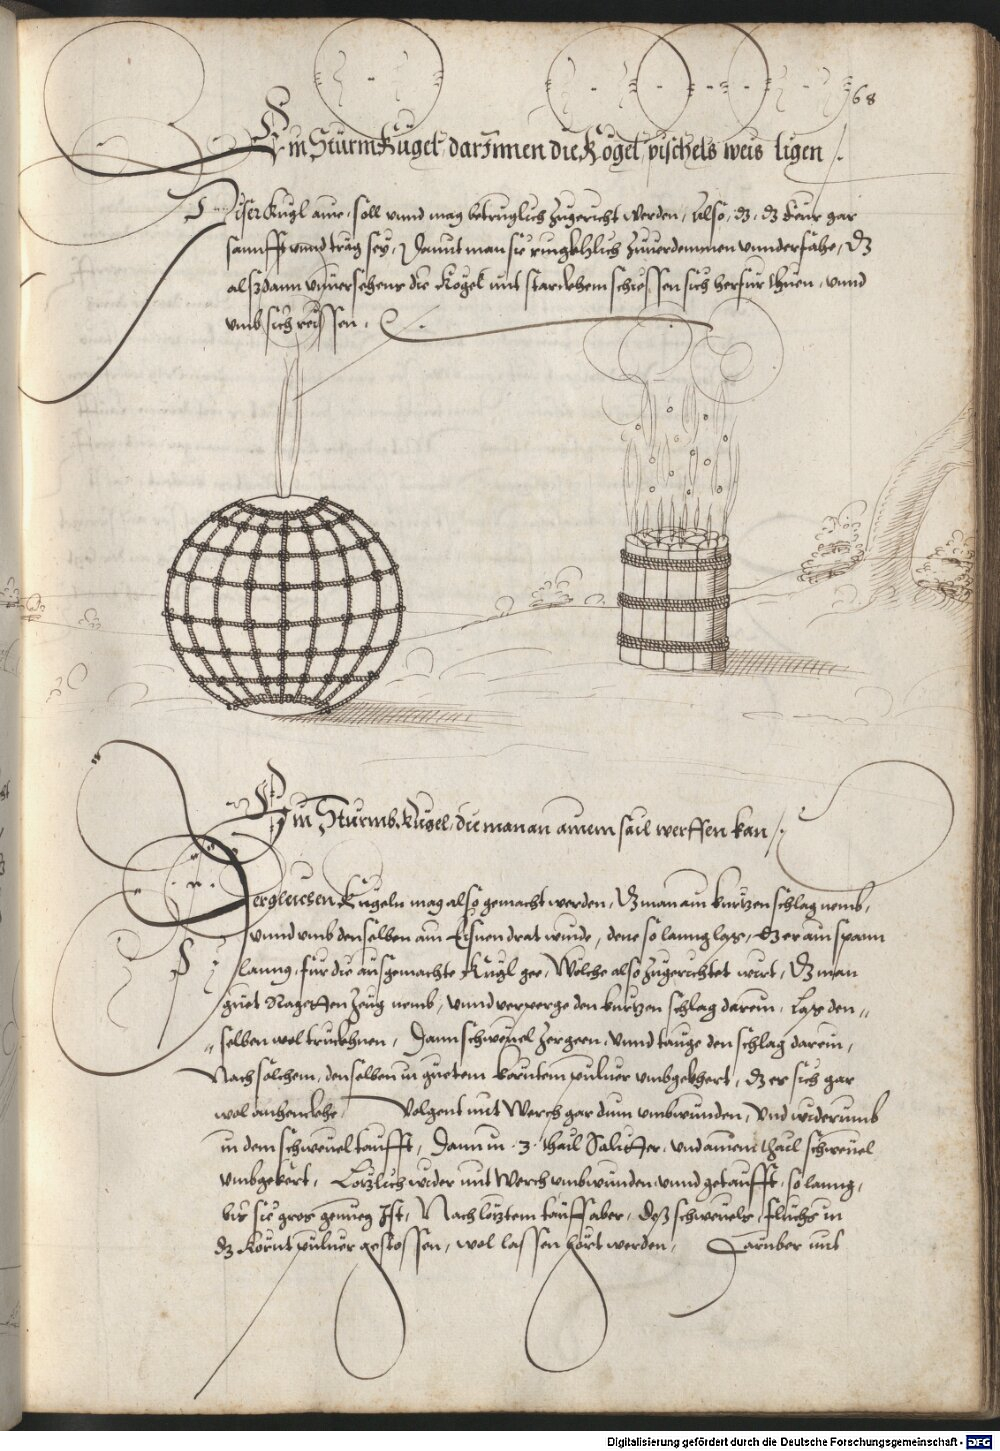 68
Ein Sturm Kugel darInnen die Kögel pischels weis ligen
Diser Kugl aine, soll vnnd mag betruglich zugericht werden, Also, dz, dz Feur gar
sannfft vnnd träg sey, Damit man sie ringkhlich zuuerdemmen vnnderfahe, dz
alszdann vnuersehens die Kögel mit starckhem schiessen sich herfür thuen, vnnd
vmb sich reissen.
Ein Sturmb Kugel, die man an ainem sail werffen kan
Dergleichen Kugeln mag also gemacht werden, dz man ain kurtzen schlag nemb,
vnnd vmb denselben ain Eisnen drat winde, dene so lanng lass, dz er ain spann
lanng, für die ausgemachte Kugl gee, Welche also zugerichtet wirt, dz man
guet zeug nemb, vnnd verperge den kurtzen schlag darein, lass den=
=selben wol truckhnen, Dann schweuel zergeen, vnnd tauge den schlag darein,
Nach solchem, denselben in guetem korntem puluer vmbgekhert, dz er sich gar
wol anhenckhe, Volgent mit Werch gar dün vmbwunden, Vnd widerumb
in dem schweuel taufft, Dann in .3. thail Saliter, vnd ainem thail schweuel
vmbgekert, Lötzlich wider mit Werch vmbwunden, vnnd getaufft, so lanng,
bis sie gros genueg Ist, Nach lötztem tauff aber, dess schweuels, fluchs in
dz kornt puluer gestossen, wol lassen hört werden, Daruber mit
Digitalisierung gefördert durch die Deutsche Forschungsgemeinschaft - DFG